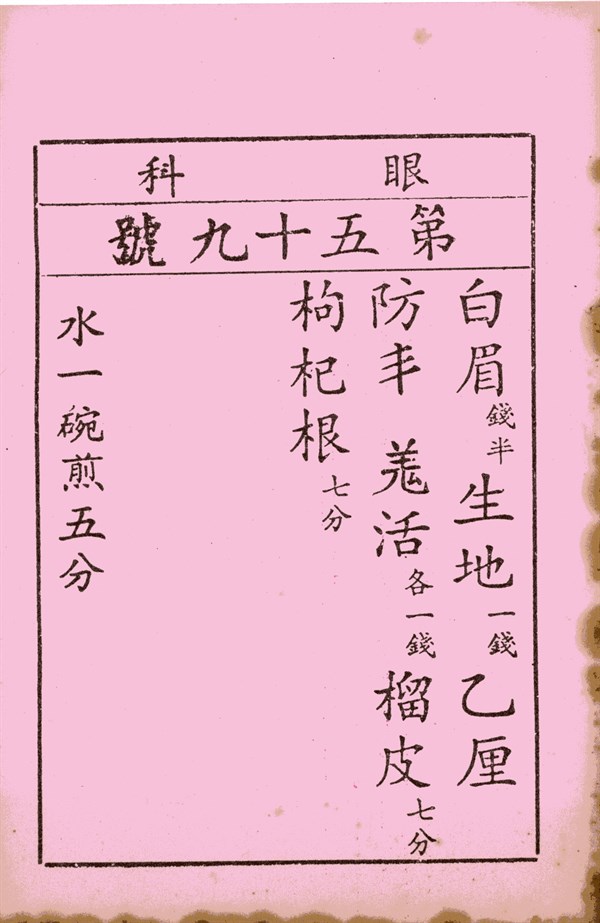 眼科
第五十九號
白眉錢半生地一錢乙厘
防丰 羗活各一錢榴皮七分
枸杞根七分
水一碗煎五分